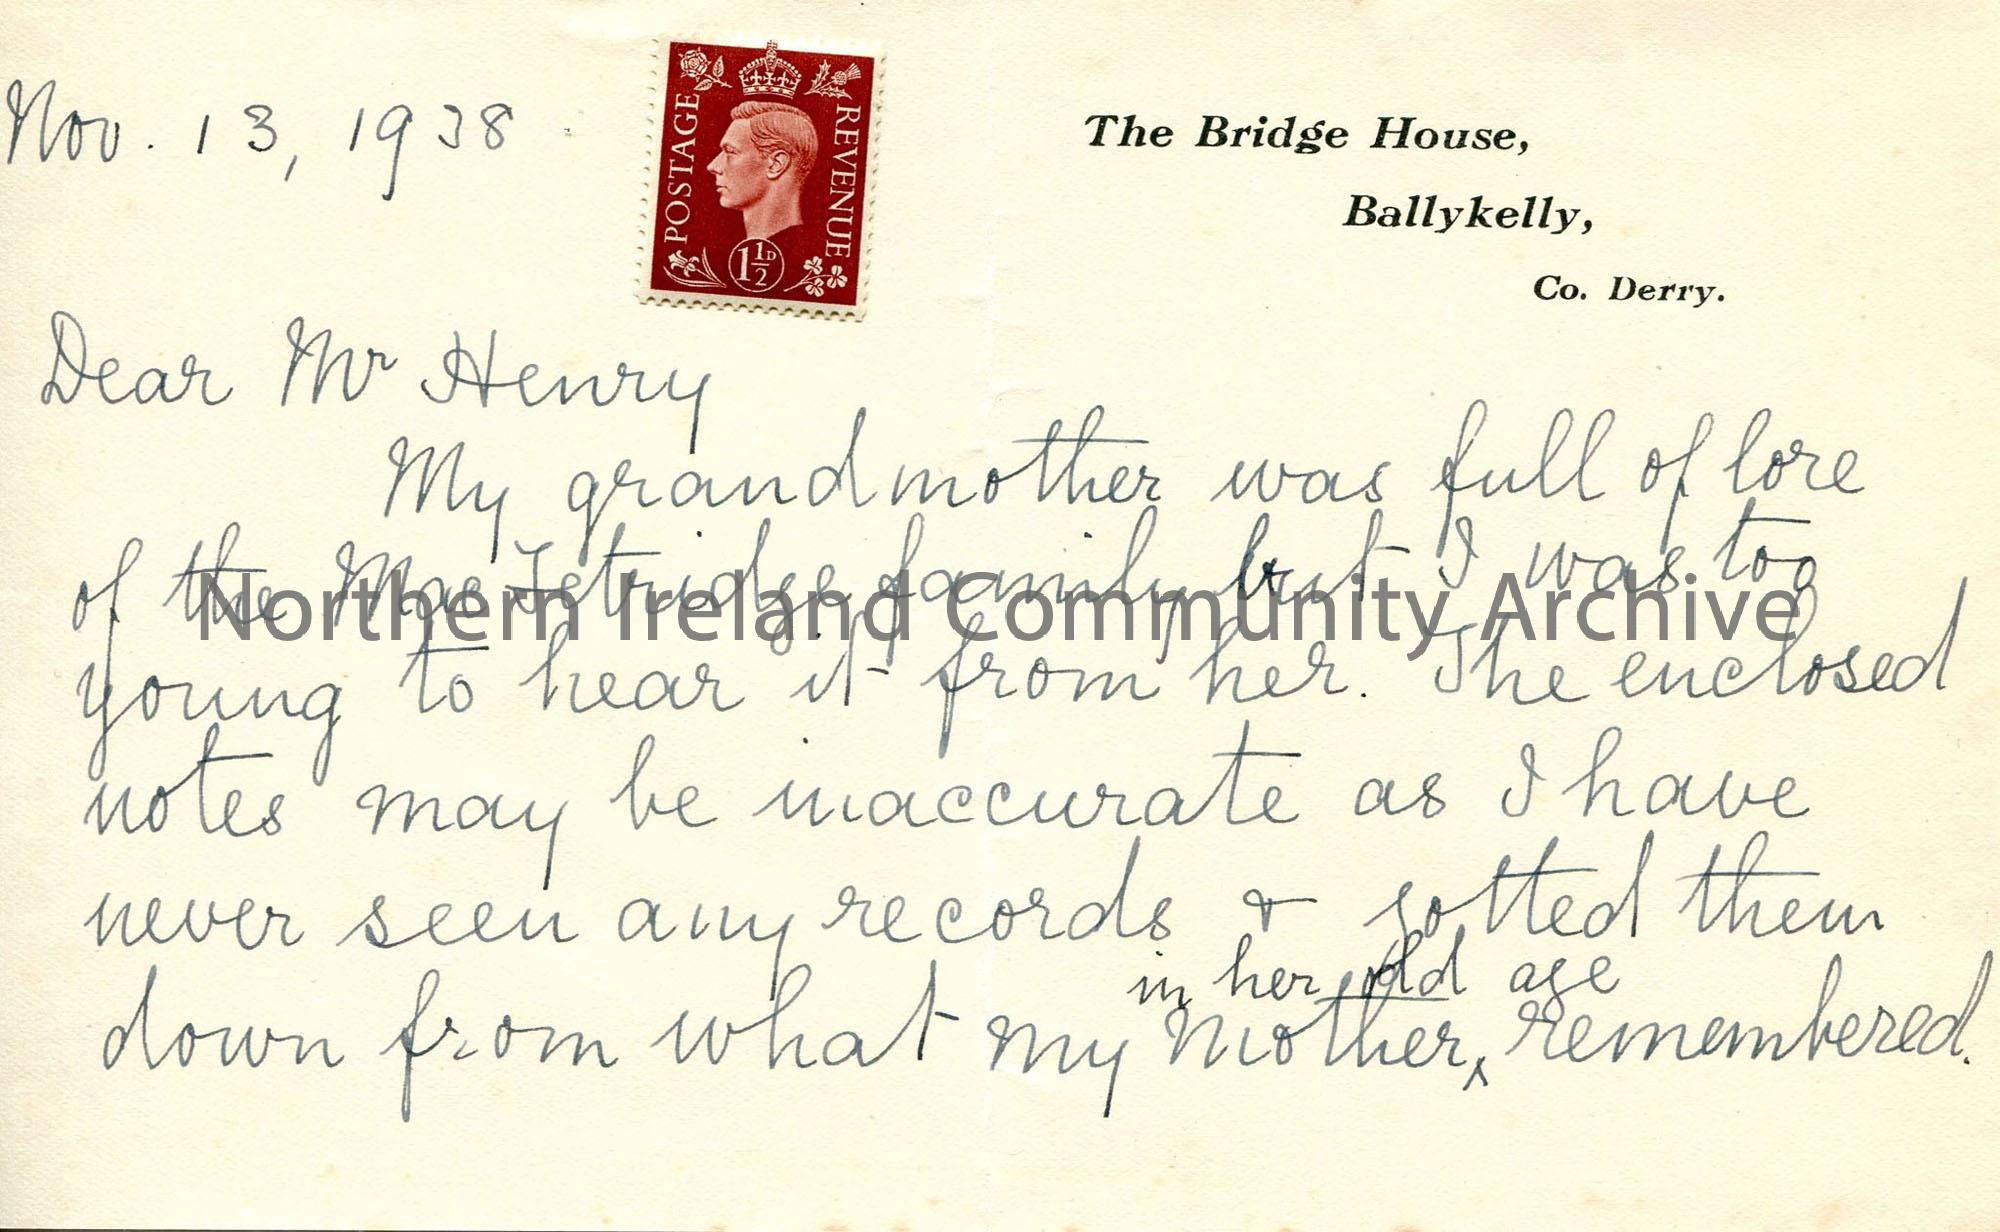 Nov. 13, 1938
POSTAGE
REVENUE
1½D
The Bridge House,
Ballykelly,
Co. Derry.
Dear Mr Henry
My grandmother was full of lore
of the MacFetridge family but I was too
Northern Ireland Community Archive
young to hear it from her. The enclosed
notes may be inaccurate as I have
never seen any records & jotted them
in her old age
down from what my mother, remembered.